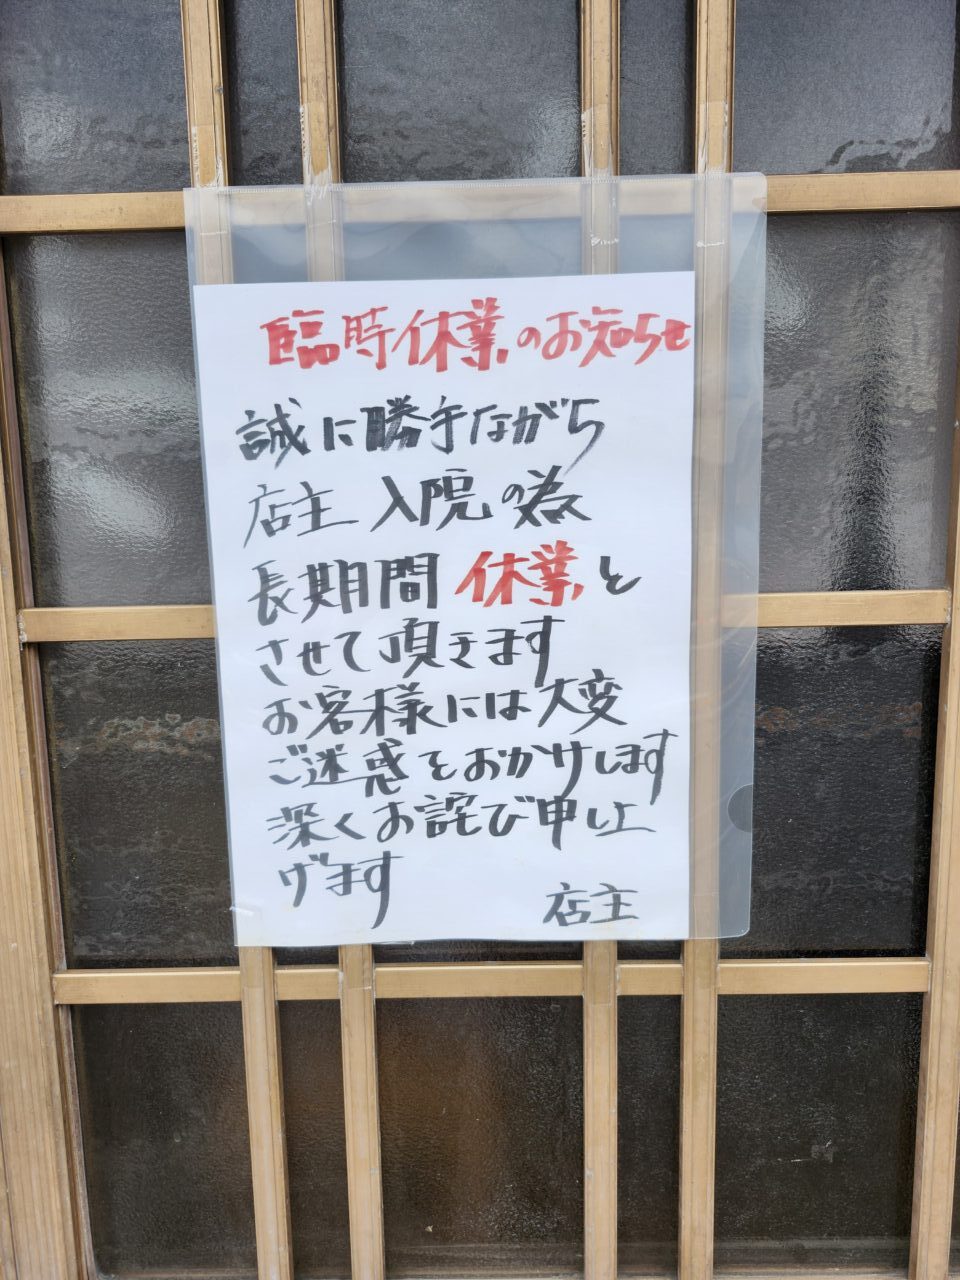 臨時休業のお知らせ
誠に勝手ながら
店主入院の為
長期間休業と
させて頂きます
お客様には大変
ご迷惑をおかけします
深くお詫び申し上
げます
店主